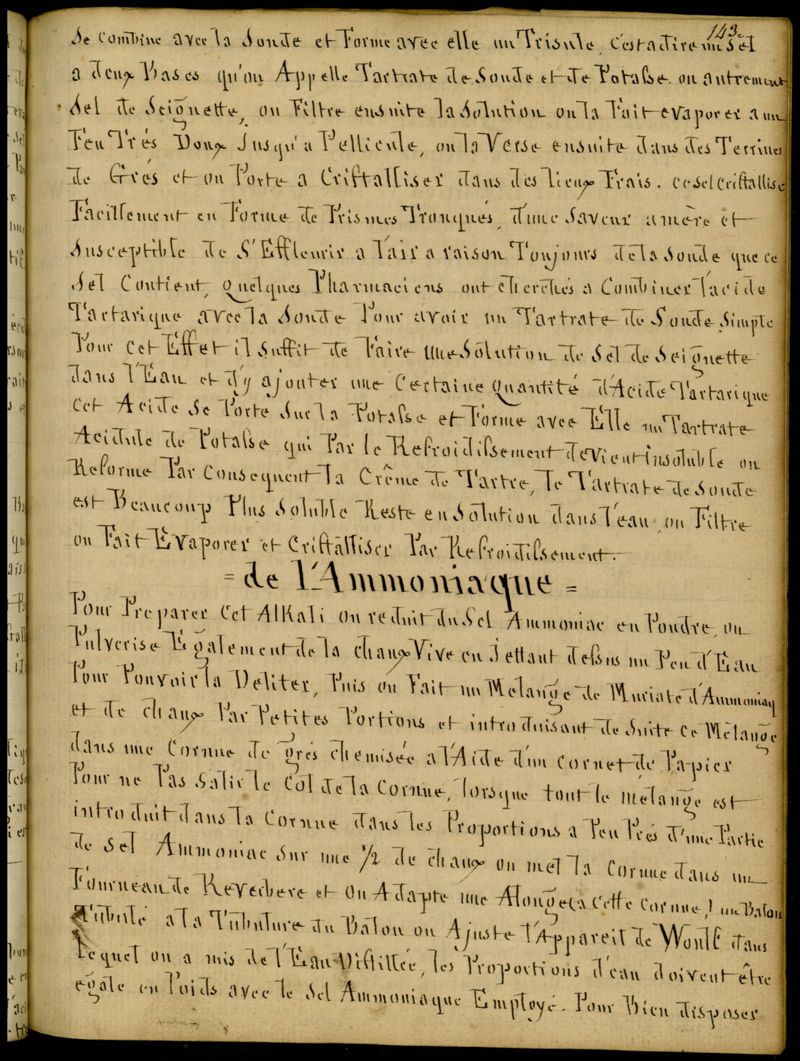 143
Se Combine avec la Soude et Forme avec elle un Trisule, C'est a dire un Sel
a deux Bases qu'on Appelle Tartrate de Soude et de Potasse ou autrement
Sel de Seignette, on Filtre ensuite la Solution on la Fait evaporer a un
Feu Très Doux Jusqu'a Pellicule, on la Verse ensuite dans des Terrines
de Grès et on Porte a Cristalliser dans des lieux Frais. ce sel Cristallise
Facillement en Forme de Prismes Tronqués, d'une Saveur amère et
Susceptible de S'Effleurir a l'air a raison Toujours de la Soude que ce
Sel Contient, Quelques Pharmaciens ont cherchés a Combiner l'acide
Tartarique avec la Soude Pour avoir un Tartrate de Soude Simple
Pour Cet Effet il Suffit de Faire Une Solution de Sel de Seignette
dans l'Eau et d'y ajouter une Certaine Quantité d'Acide Tartarique
Cet Acide Se Porte Sur la Potasse et Forme avec Elle un Tartrate
Acidule de Potasse qui Par le Refroidissement devient insoluble on
Reforme Par Consequent la Crême de Tartre, le Tartrate de Soude
est Beaucoup Plus Soluble Reste en Solution dans l'eau on Filtre
on Fait Evaporer et Cristalliser Par Refroidissement.
= de l'Ammoniaque =
Pour Preparer Cet Alkali on reduit du Sel Ammoniac en Poudre, on
Pulverise Egalement de la chaux Vive en Jettant dessus un Peu d'Eau
Pour Pouvoir la Deliter, Puis on Fait un Mélange de Muriate d'Ammoniaq
et de chaux Par Petites Portions et introduisant de Suite Ce Mélange
dans une Cornue de grés chemisée a l'Aide d'un Cornet de Papier
Pour ne Pas Salir le Col de la Cornue, lorsque tout le mélange est
introduit dans la Cornue dans les Proportions a Peu Prés d'une Partie
de Sel Ammoniac Sur une 1/2 de chaux on met la Cornue dans un
Fourneau de Reverbere et On Adapte une Alonge a Cette Cornue, un Balon
Tubulé a la Tubulure du Balon on Ajuste l'Appareil de Woulf dans
lequel on a mis de l'Eau Distillée, les Proportions d'eau doivent être
egale en Poids avec le Sel Ammoniaque Employé. Pour Bien disposer